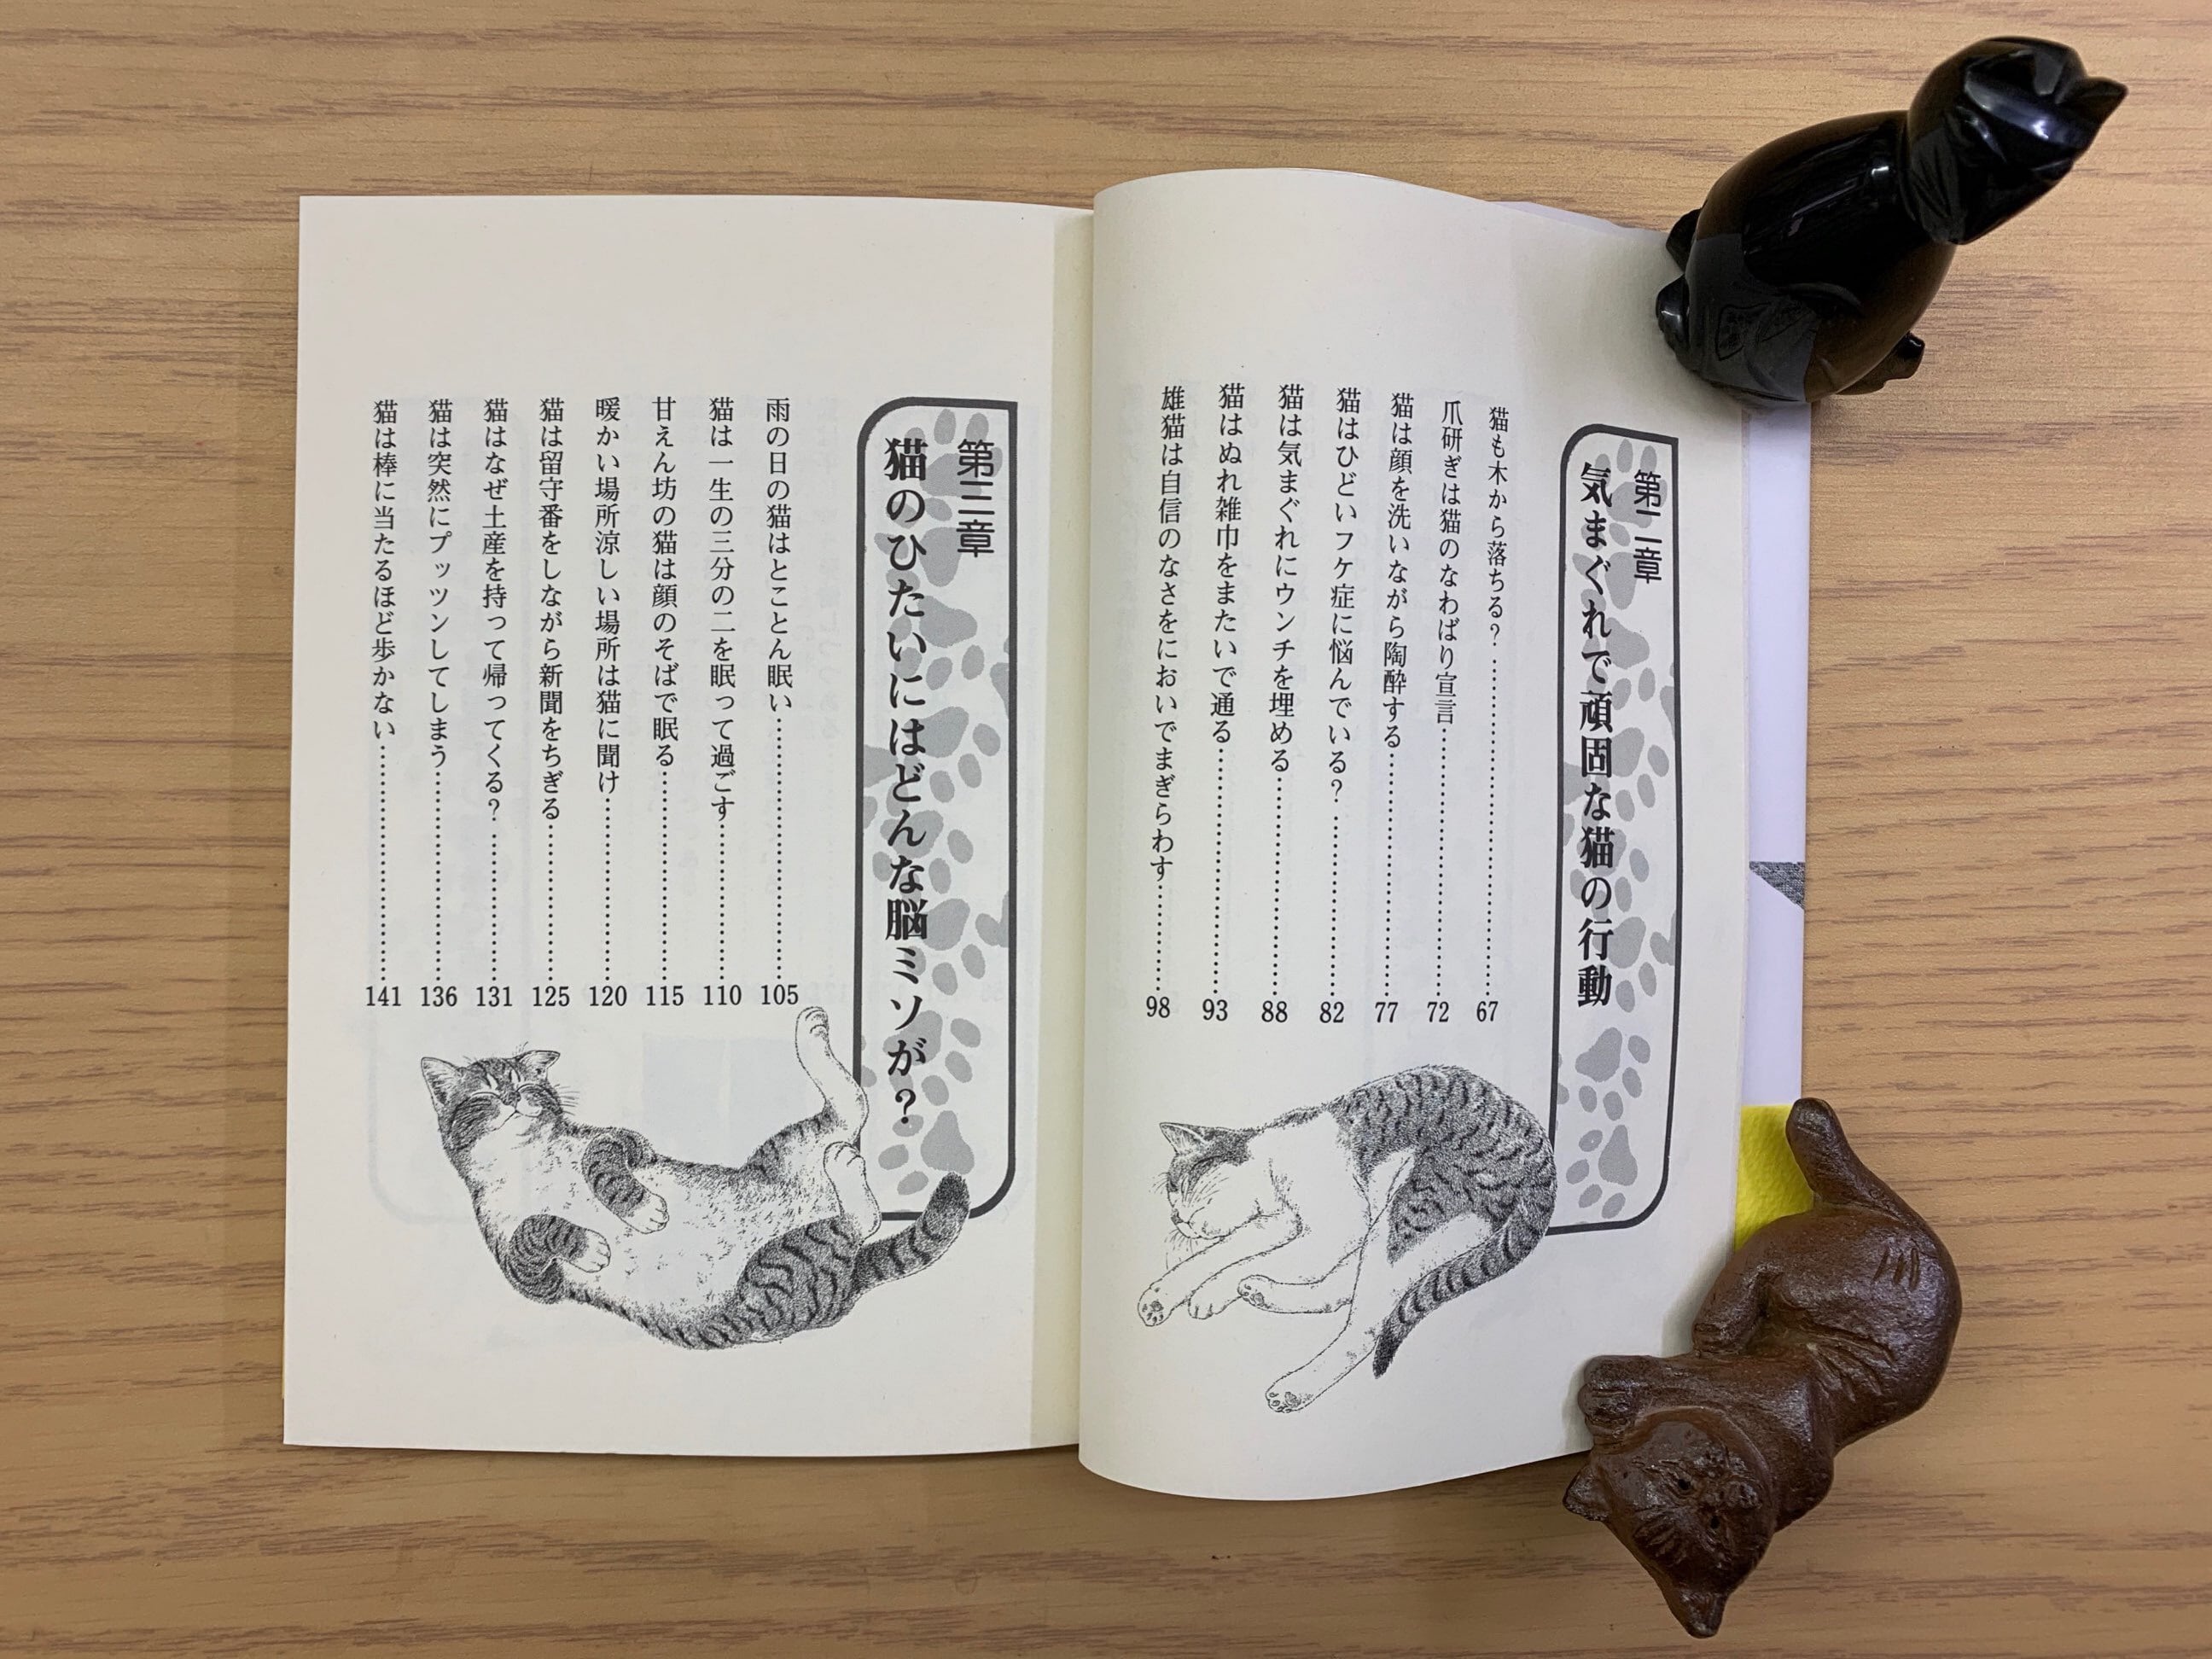 第二章
気まぐれで頑固な猫の行動
猫も木から落ちる？……………………67
爪研ぎは猫のなわばり宣言……………………72
猫は顔を洗いながら陶酔する……………………77
猫はひどいフケ症に悩んでいる？……………………82
猫は気まぐれにウンチを埋める……………………88
猫はぬれ雑巾をまたいで通る……………………93
雄猫は自信のなさをにおいでまぎらわす……………98
第三章
猫のひたいにはどんな脳ミソが？
雨の日の猫はとことん眠い……………………105
猫は一生の三分の二を眠って過ごす……………………110
甘えん坊の猫は顔のそばで眠る……………………115
暖かい場所涼しい場所は猫に聞け……………………120
猫は留守番をしながら新聞をちぎる……………………125
猫はなぜ土産を持って帰ってくる？……………………131
猫は突然にプッツンしてしまう……………………136
猫は棒に当たるほど歩かない……………………141